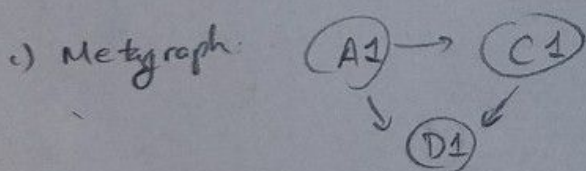 c) Metagraph: A1 → C1
D1